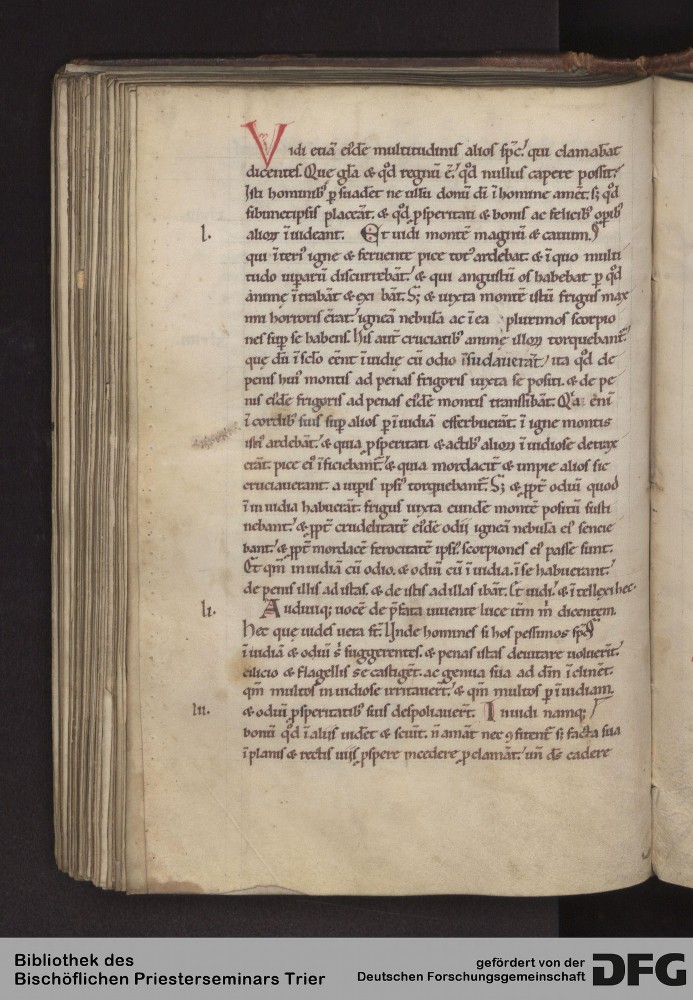 Vidi etiā eiꝰdē multitudinis alios sp̄c. qui clamabāt
dicentes. Que gl̄a & qd̄ regnū ē. qd̄ nullus capere possit.
Isti hominibꝰ ꝑsuadēt ne ullū donū dī ī homine amēt. sꝫ qd̄
sibimetipsis placeāt. & qd̄ ꝓsperitati & bonis ac felicibꝰ opibꝰ
l. alioꝝ īuideant. Et uidi montē magnū & cauum.
qui īteriꝰ igne & feruente pice totꝰ ardebat. & ī quo multi
tudo uiꝑarū discurrebāt. & qui angustū os habebat ꝑ qd̄
anime ītrabāt & exibāt. Sꝫ & iuxta montē istū frigus max
imi horroris erat. igneā nebulā ac ī ea plurimos scorpio
nes suꝑ se habens. His aut̄ cruciatibꝰ anime illoꝝ torquebant̄.
que dū ī sc̄lo eēnt īuidie cū odio īsudauerāt. ita qd̄ de
penis huiꝰ montis ad penas frigoris iuxta se positi. & de pe
nis eiꝰdē frigoris ad penas eiꝰdē montis transibāt. Qia eni
ī cordibꝰ suis suꝑ alios ꝑ īuidiā efferbuerāt. ī igne montis
istiꝰ ardebāt. & quia ꝓsperitati & actibꝰ alioꝝ īuidiose detrax
erāt. pice eiꝰ īficiebant̄. & quia mordacit̄ & impie alios sic
cruciauerant. a uiꝑis ipsiꝰ torquebant̄. Sꝫ & ꝓpt̄ odiū quod
ī inuidia habuerāt. frigus iuxta eundē montē positū susti
nebant. & ꝓpt̄ crudelitatē eiꝰdē odij igneā nebulā eiꝰ sencie
bant. & ꝓpt̄ mordacē ferocitatē ipsiꝰ. scorpiones eiꝰ passe sunt.
Et qm̄ inuidiā cū odio. & odiū cū īuidia. ī se habuerant.
de penis illis ad istas. & de istis ad illas ibāt. Et uidi. & ītellexi hec.
li. Audiuiqꝫ uocē de p̄fata uiuente luce itm̄ m̄ dicentem.
Hec que uides uera st̄. Unde homines si hos pessimos sp̄c
īuidiā & odiū s suggerentes. & penas istas deuitare uoluerīt.
cilicio & flagellis se castigēt. ac genua sua ad dm̄ īclinēt.
qm̄ multos inuidiose irritauert̄. & qm̄ multos ꝑ īuidiam
lii. & odiū ꝓsperitatibꝰ suis despoliauert̄. Inuidi namqꝫ
bonū qd̄ ī alijs uidēt & sciūt. n̄ amāt nec ꝯfitent̄ sꝫ facta sua
ī planis & rectis uiis ꝓspere incedere ꝓclamāt. un̄ ds̄ cadere
Bibliothek des
Bischöflichen Priesterseminars Trier
gefördert von der
Deutschen Forschungsgemeinschaft
DFG